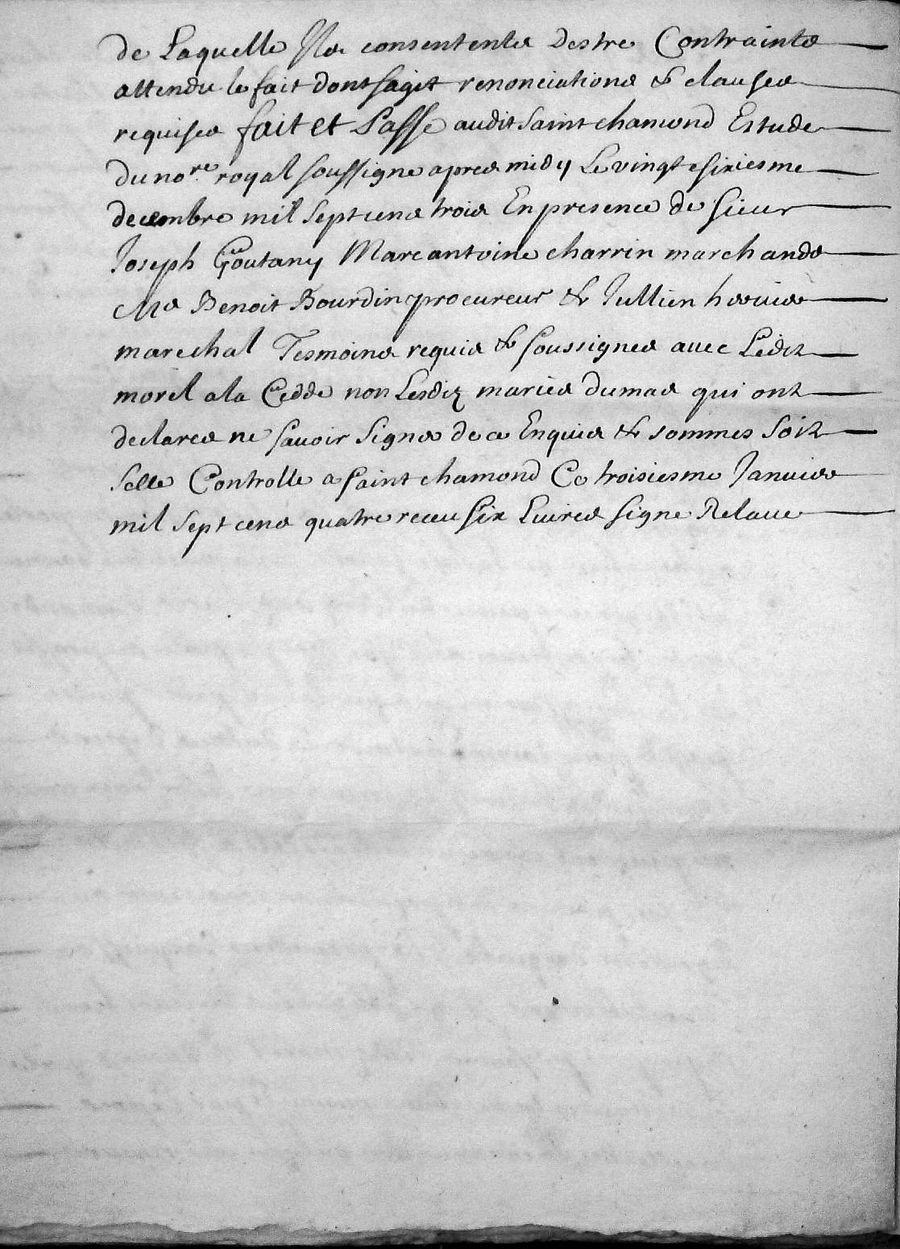 de Laquelle Ils consentents destre Contraints
attendu le fait dont sagit renonciations & clauses
requises fait et Passé audit Saint chamond Estude
du no.re royal soussigne apres midy Le vingt sixiesme
decembre mil Sept cens trois En presence de Sieur
Joseph Goutany Marcantoine charrin marchands
Me Benoit Bourdin procureur & Jullien
marechal Tesmoins requis & soussignes avec Ledit
morel a la Cedde non Lesdiz maries dumas qui ont
declares ne savoir signe de ce Enquis & sommes Soit
selle Controlle a saint chamond Ce troisiesme Janvier
mil Sept cens quatre receu six Livres signe